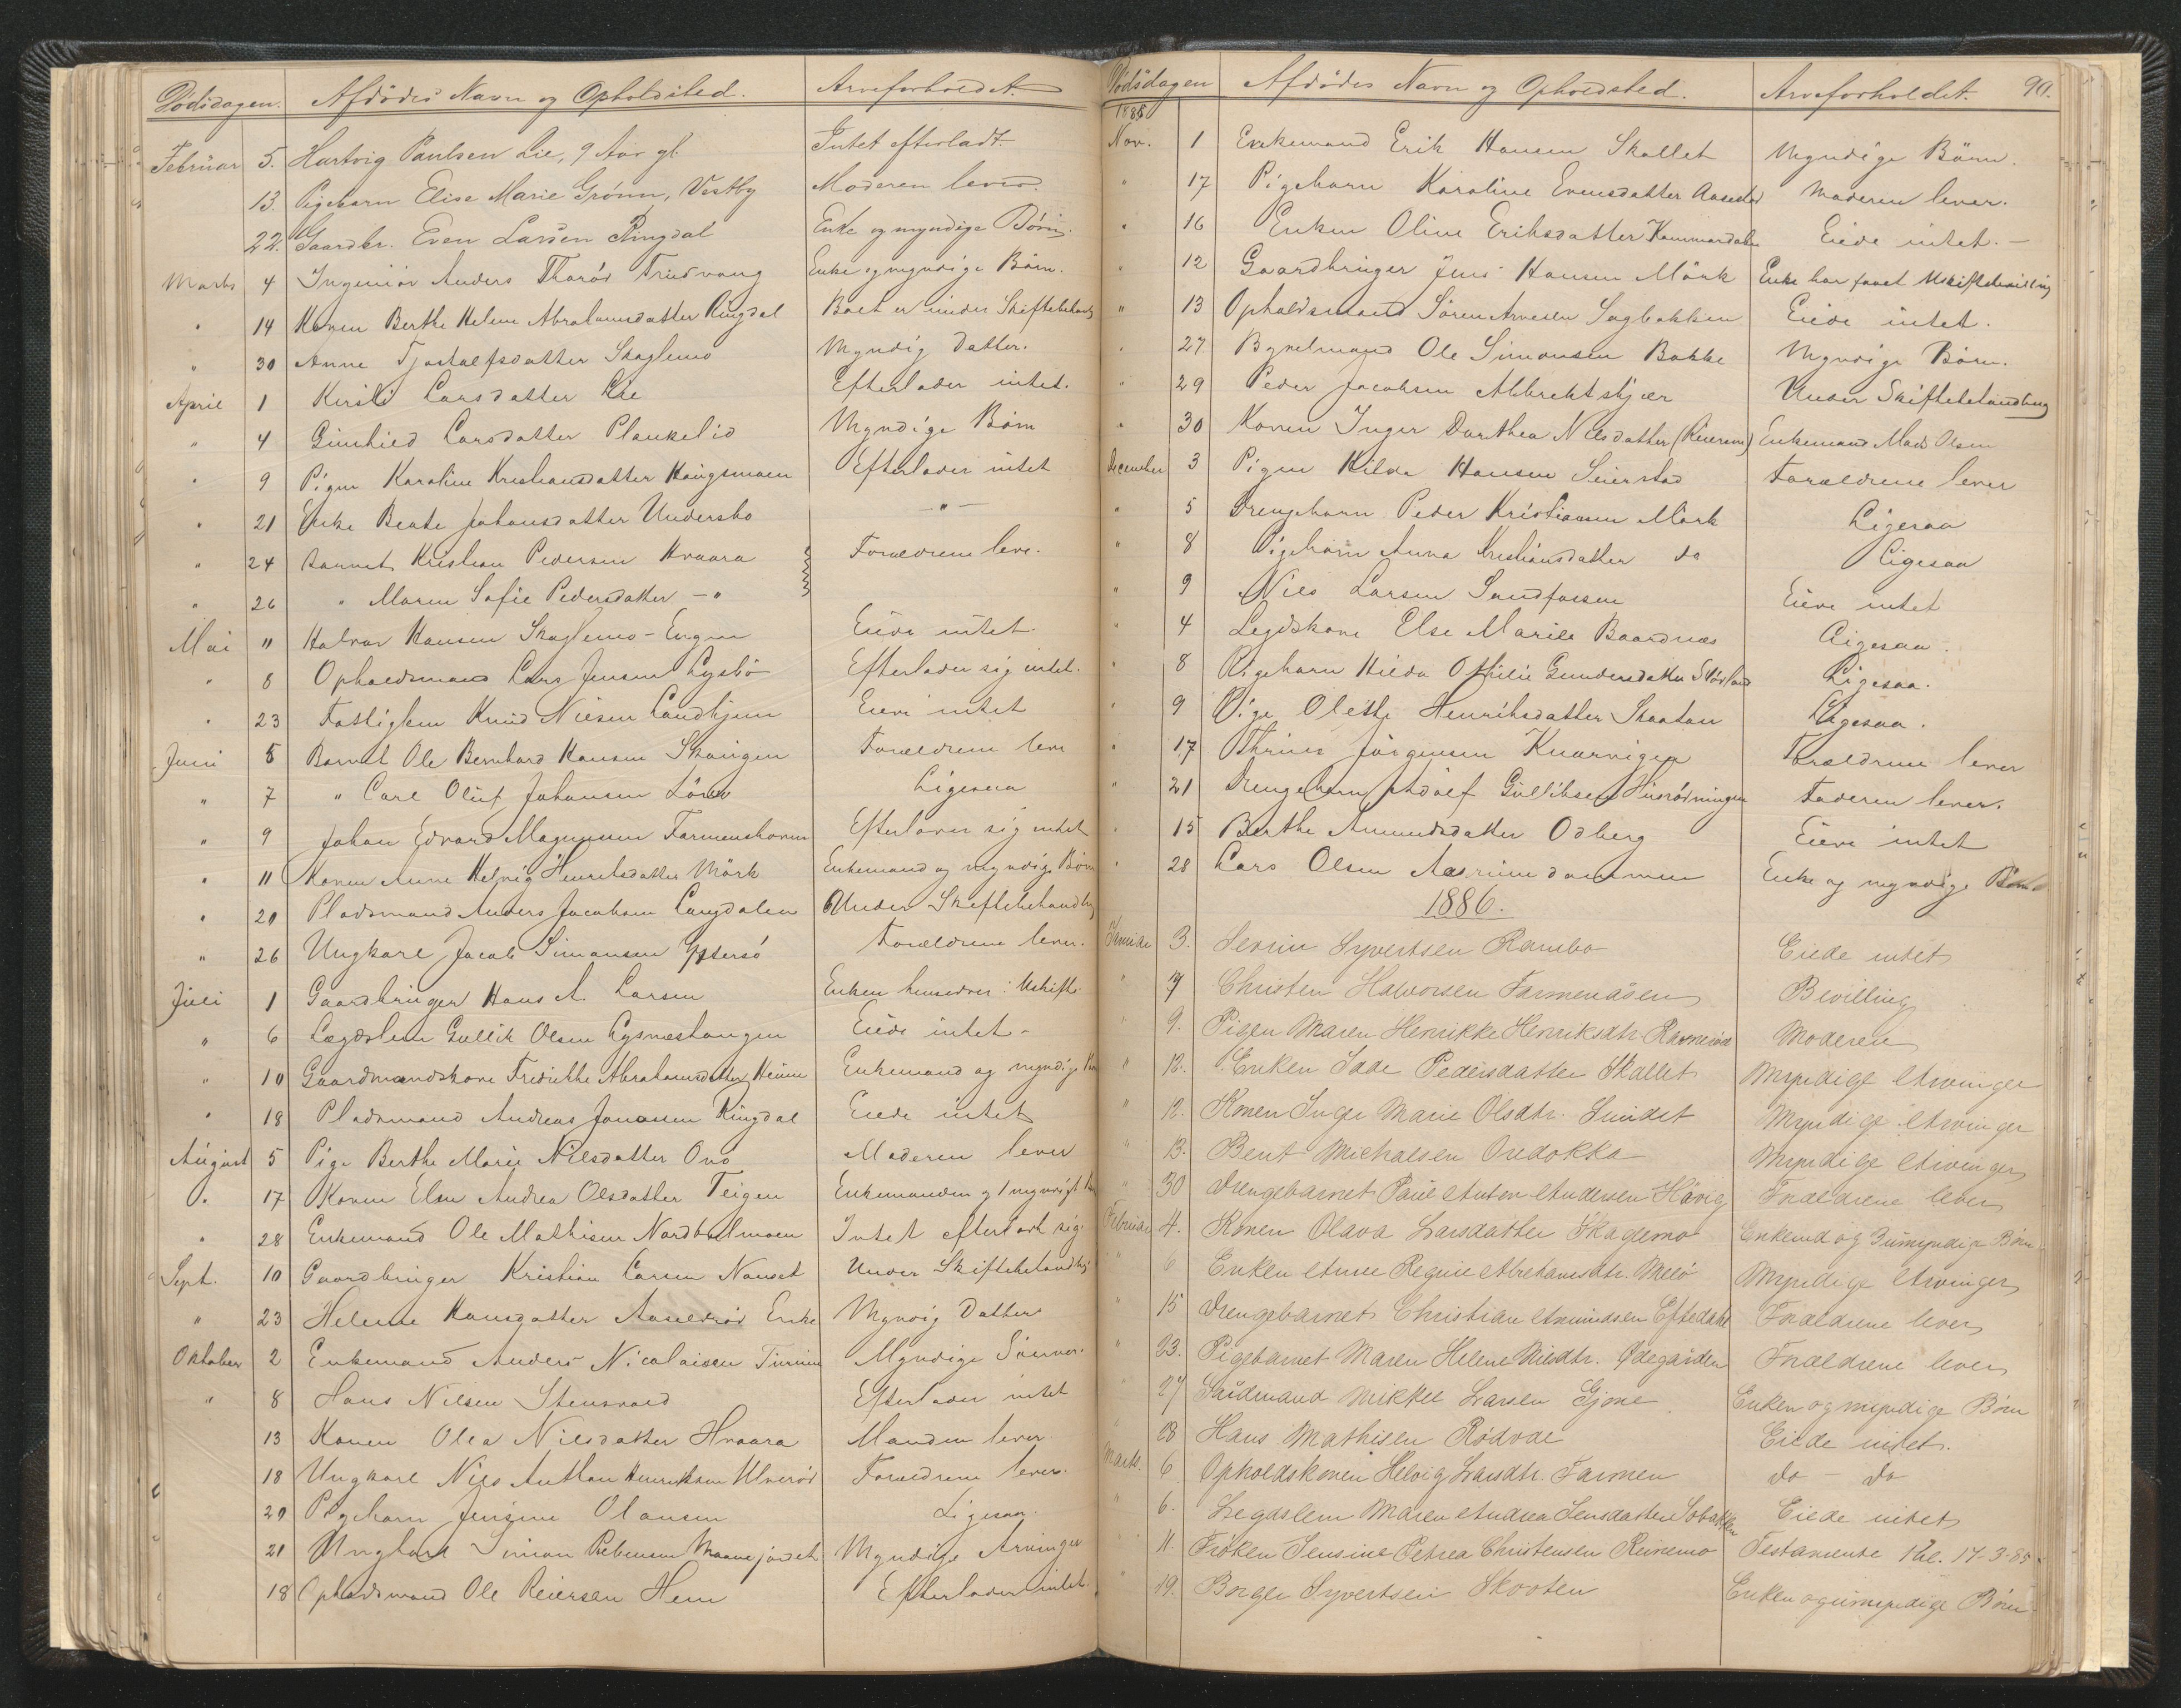 Dödsdagen. Afdödes Navn og Opholdsted. Arveforholdet.
Februar 5. Hartvig Paulsen Lie, 9 Aar gl. Intet efterladt.
13. Pigebarn Elise Marie Grønn, Vestby Moderen lever.
22. Gaardbr. Even Larsen Ringdal Enke og myndige Børn.
Marts 4 Ingeniör Anders Thorød Enke og myndige Börn.
" 14 Konen Berthe Helene Abrahamsdatter Ringdal Boet er under Skiftebehandl
" 30 Anne Skaglemo Myndig Datter.
April 1 Kirsti Larsdatter Lie Efterlader intet.
" 4 Gunhild Larsdatter Plankelid Myndige Börn
" 9 Pigen Karoline Kristiansdatter Efterlader intet
" 21 Enke Beate Johansdatter Undersbo - " -
" 24 Barnet Kristian Pedersen Kvaara Forældrene leve.
" 26 " Maren Sofie Pedersdatter - "
Mai " Halvor Hansen Skaglemo-Engen Eiede intet.
" 8 Opholdsmand Lars Jensen Lysbö Efterlader sig intet.
" 23 Fattiglem Knud Nilsen Eiede intet
Juni 5 Barnet Ole Bernhard Hansen Forældrene leve
" 7 " Carl Oluf Johansen Ligesaa
" 9 Johan Edvard Magnusen Farmenshoven Efterlader sig intet
" 11 Konen Anne Helvig Henriksdatter Mörk Enkemand og myndige Börn
" 20 Pladsmand Anders Jacobsen Langdalen Under Skiftebehandlig
" 26 Ungkarl Jacob Simonsen Yttersö Forældrene lever.
Juli 1 Gaardbruger Hans A. Larsen Enken hensidder i Uskifte
" 6 Lægdslem Gullik Olsen Lysnestangen Eiede intet -
" 10 Gaardmandskone Fredrikke Abrahamsdatter Enkemand og myndige
" 18 Pladsmand Andreas Jonassen Ringdal Eiede intet
August 5 Pige Berthe Marie Nilsdatter Ono Moderen lever
" 17 Konen Elen Andrea Olsdatter Teigen Enkemanden og 1 myndigt
" 28 Enkemand Ole Mathisen Nordbolmoen Intet efterladt sig.
Sept. 10 Gaardbruger Kristian Larsen Nanset Under Skiftebehandlig
" 23 Helene Hansdatter Enke Myndig Datter
Oktober 2 Enkemand Anders Nicolaisen Myndige Sönner.
" 8 Hans Nilsen Stensvold Efterlader intet
13 Konen Olea Nilsdatter Hvaara Manden lever.
18 Ungkarl Nils Anthon Henriksen Ulverød Forældrene lever.
20 Pigebarn Jensine Olausen Ligesaa.
21 Ungkarl Simon Myndige Arvinger
18 Opholdsmand Ole Reiersen Hem Efterlader intet.
Dödsdagen Afdödes Navn og Opholdsted. Arveforholdet. 90.
1885
Nov. 1 Enkemand Erik Hansen Skallet Myndige Börn.
" 17 Pigebarn Karoline Evensdatter Moderen lever.
" 16 Enken Oline Eriksdatter Eiede intet. -
" 12 Gaardbruger Jens Hansen Mörk Enke har faaet Uskiftebevilling
" 13 Opholdsmand Sören Arnesen Sagbakken Eiede intet.
" 27 Ole Simonsen Bakke Myndige Börn.
" 29 Peder Jacobsen Albrektskjær Under Skiftebehandling
" 30 Konen Inger Dorthea Nilsdatter Enkemand Mads Olsen
December 3 Pigen Hilda Hansen Seierstad Forældrene lever
" 5 Drengebarn Peder Kristiansen Mörk Ligesaa
" 8 Pigebarn Anna Kristiansdatter do Ligesaa
" 9 Nils Larsen Sandfossen Eiede intet
" 4 Legdskone Else Marie Baardnæs Ligesaa.
" 8 Pigebarn Hilda Othilie Gundersdatter Ligesaa.
" 9 Pige Olette Henriksdatter Skaatan Ligesaa.
" 17 Jörgensen Knarvigen Forældrene lever
" 21 Drengebarn Adolf Gulliksen Faderen lever.
" 15 Berthe Amundsdatter Odberg Eiede intet
" 28 Lars Olsen Enke og myndige Börn
1886.
Januar 3. Severin Syvertsen Rambo Eiede intet
" 7 Christen Halvorsen Farmenåsen Bevilling
" 9. Pigen Maren Henrikke Henriksdtr. Moderen
" 12. Enken Pedersdatter Skallet Myndige Arvinger
" 12. Konen Inge Marie Olsdtr. Sundet Myndige Arvinger
" 13. Bent Michalsen Myndige Arvinger
" 30 Drengebarnet Paul Anton Andersen Håvig Forældrene lever
Februar 4. Konen Olava Larsdatter Skaglemo Enkemd og 3 umyndige Börn
" 6 Enken Anne Regine Abrahamsdtr. Melö Myndige Arvinger
" 15 Drengebarnet Christian Amundsen Eftedahl Forældrene lever
" 23. Pigebarnet Maren Helene Nilsdtr. Ødegården Forældrene lever
" 27 Mikkel Larsen Gjone Enken og myndige Börn
" 28 Hans Mathisen Rödvoe Eiede intet.
Marts. 6 Opholdskonen Helvig Larsdtr. Farmen do - do
" 6. Legdslem Maren Andrea Jensdatter Eiede intet
" 11. Fröken Jensine Petrea Christensen Reinemo Testamente 17-3-85
" 19. Borger Syvertsen Skooten Enken og umyndige Börn